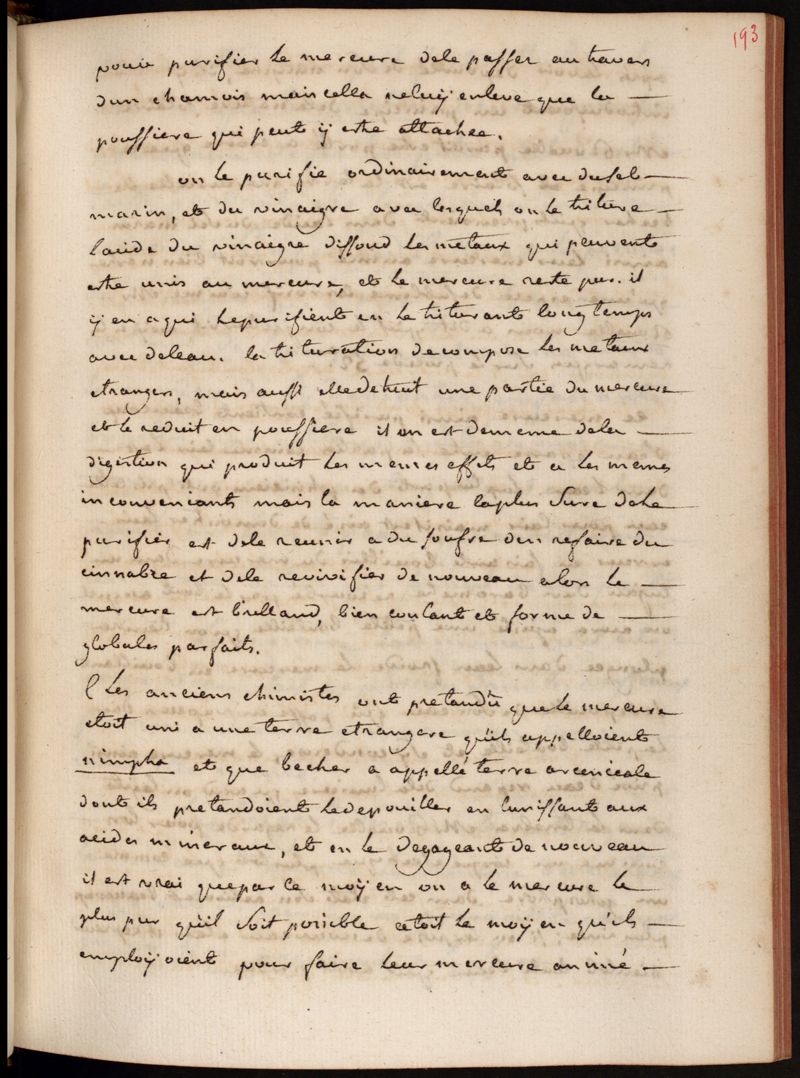 193
pour purifier le mercure dele passer au travers
dun chamois mais cella neluy enleve que la
poussiere qui peut ÿ estre attachée.
on le purifie ordinairement avec du sel
marin, et du vinaigre avec lesquels on le triture
lacide du vinaigre dissoud les metaux qui peuvent
estre unis au mercure, et le mercure reste pur. il
ÿ en a qui lepurifient en le triturant longtemps
avec deleau. la trituration decompose les metaux
etrangers, mais aussi elledetruit une partie du mercure
et le reduit en poussiere il en est dememe dela
digestion qui produit les memes effets et a les memes
inconveniants mais la maniere laplus sure dele
purifier est dele reunir a du soufre den refaire du
cinnabre et dele revivifier de nouveau alors le
mercure est brilland, bien coulant et forme de
globules parfaits.
Les anciens chimistes ont pretendu que le mercure
etoit uni a une terre etrangere quils appelloient
nimpha et que becher a appellé terre arcenicale
dont ils pretendoient ledepouiller en lunissant aux
acides mineraux, et en le degageant de nouveau
il est vrai quepar ce moÿen on a le mercure le
plus pur quil soit possible cetoit le moÿen quils
emploÿoient pour faire leur mercure animé